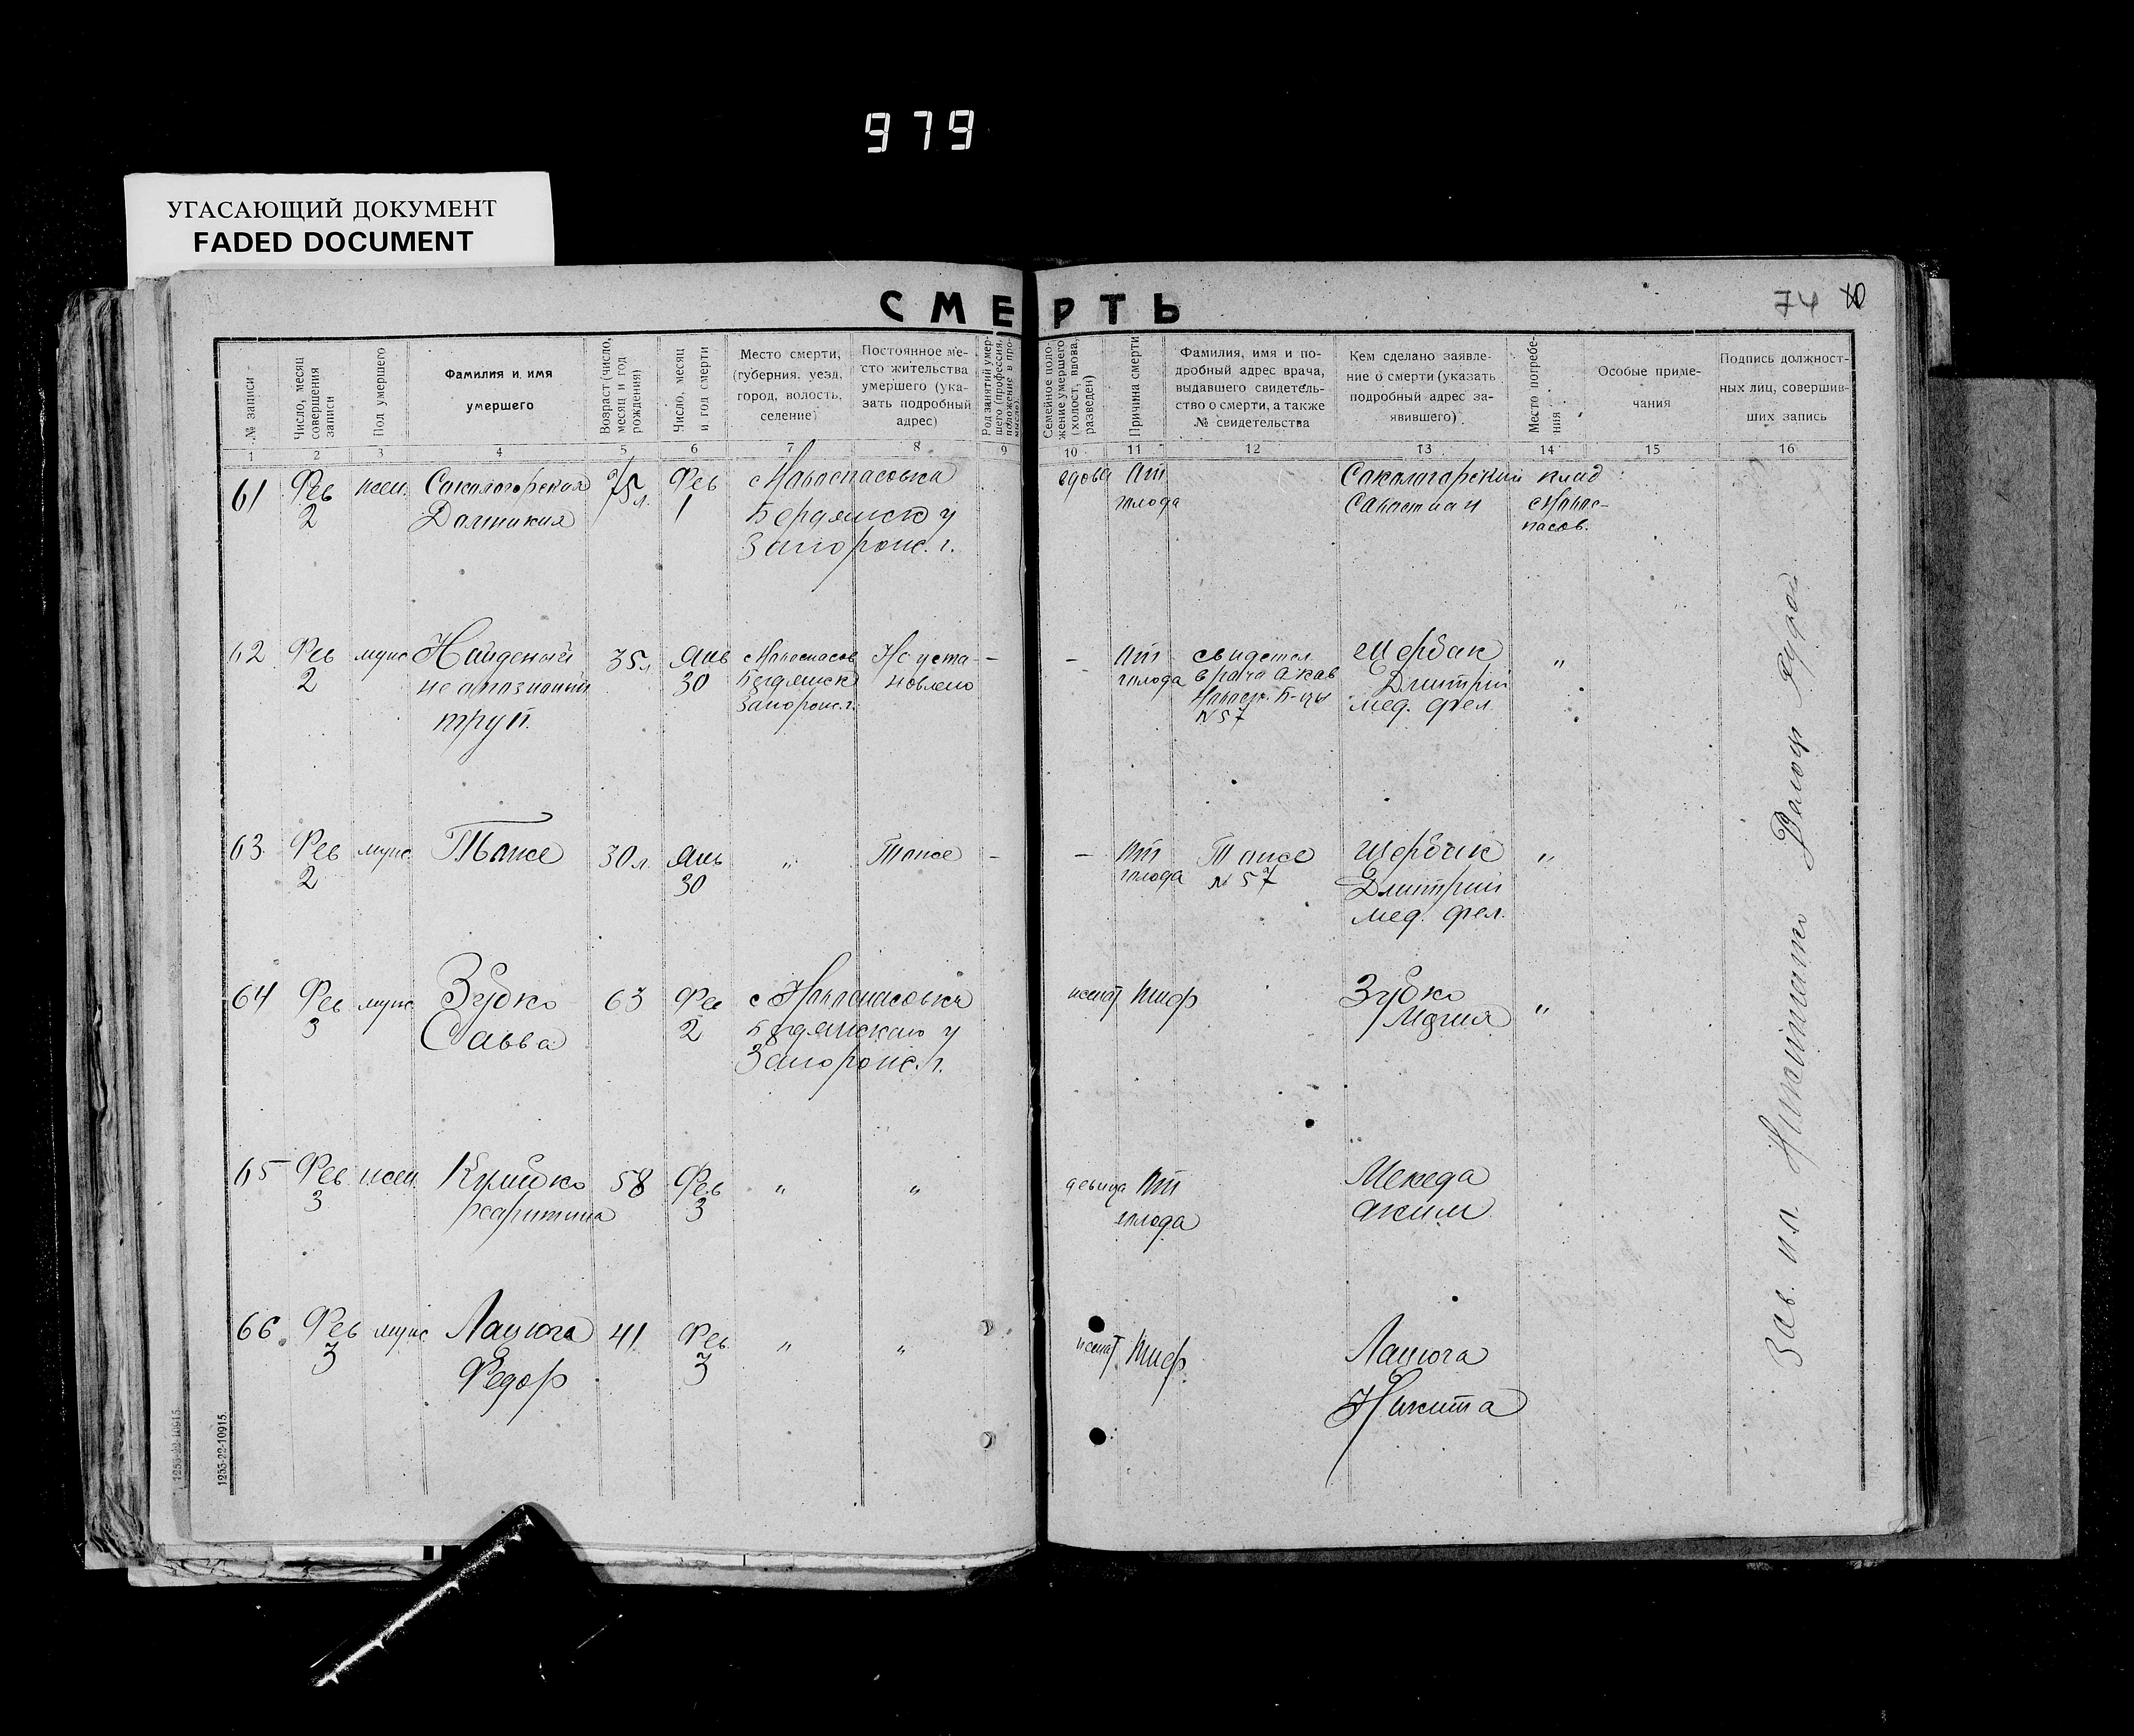 979
УГАСАЮЩИЙ ДОКУМЕНТ
FADED DOCUMENT
СМЕРТЬ
74
№ записи
Число, месяц совершения записи
Пол умершего
Фамилия и имя умершего
Возраст (число, месяц и год рождения)
Число, месяц и год смерти
Место смерти, (губерния, уезд, город, волость, селение)
Постоянное место жительства умершего (указать подробный адрес)
Семейное положение умершего (холост, вдова, разведен)
Причина смерти
Фамилия, имя и подробный адрес врача, выдавшего свидетельство о смерти, а также № свидетельства
Кем сделано заявление о смерти (указать подробный адрес заявившего)
Место погребения
Особые примечания
Подпись должностных лиц, совершивших запись
1 2 3 4 5 6 7 8 9 10 11 12 13 14 15 16
61 Фев 2 жен. Сокологорская 75 л. Фев 1 с Новоспасовка
Бердянск у
Запорож. г.
вдова От голода
Сокологорский
клад. с Новоспасов.
62 Фев 2 муж Найденый
неопознаный
труп.
35 л. Янв 30 с Новоспасов Бердянск Запорож. г.
Не установлено
— — От голода
свидетел врача
N 57
Щербак
Дмитрий
мед. фел.
"
63 Фев 2 муж. Тоже 30 л. Янв 30 " Тоже — — От голода Тоже N 57
Щербак
Дмитрий
мед. фел.
"
64 Фев 3 муж. Зубко
Савва
63 Фев 2 с Новоспасовка
Бердянского у
Запорож. г.
женат Тиф
Зубко
Мария
"
65 Фев 3 жен.
58 Фев 3 " " девица От голода
Мекеда
Аким
66 Фев 3 муж. Лацюга
Федор
41 Фев. 3 " " женат Тиф.
Лацюга
Никита
Зав. п.п.
1253-22-10915.
1253-22-10915.